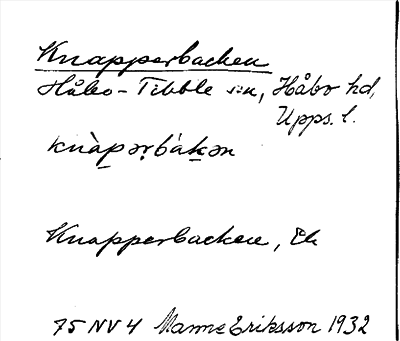 Knapperbacken
Håbo-Tibble sn, Håbo hd,
Upps. l.
knàpərbákən
Knapperbacken, Ek
75 NV 4 Manne Eriksson 1932